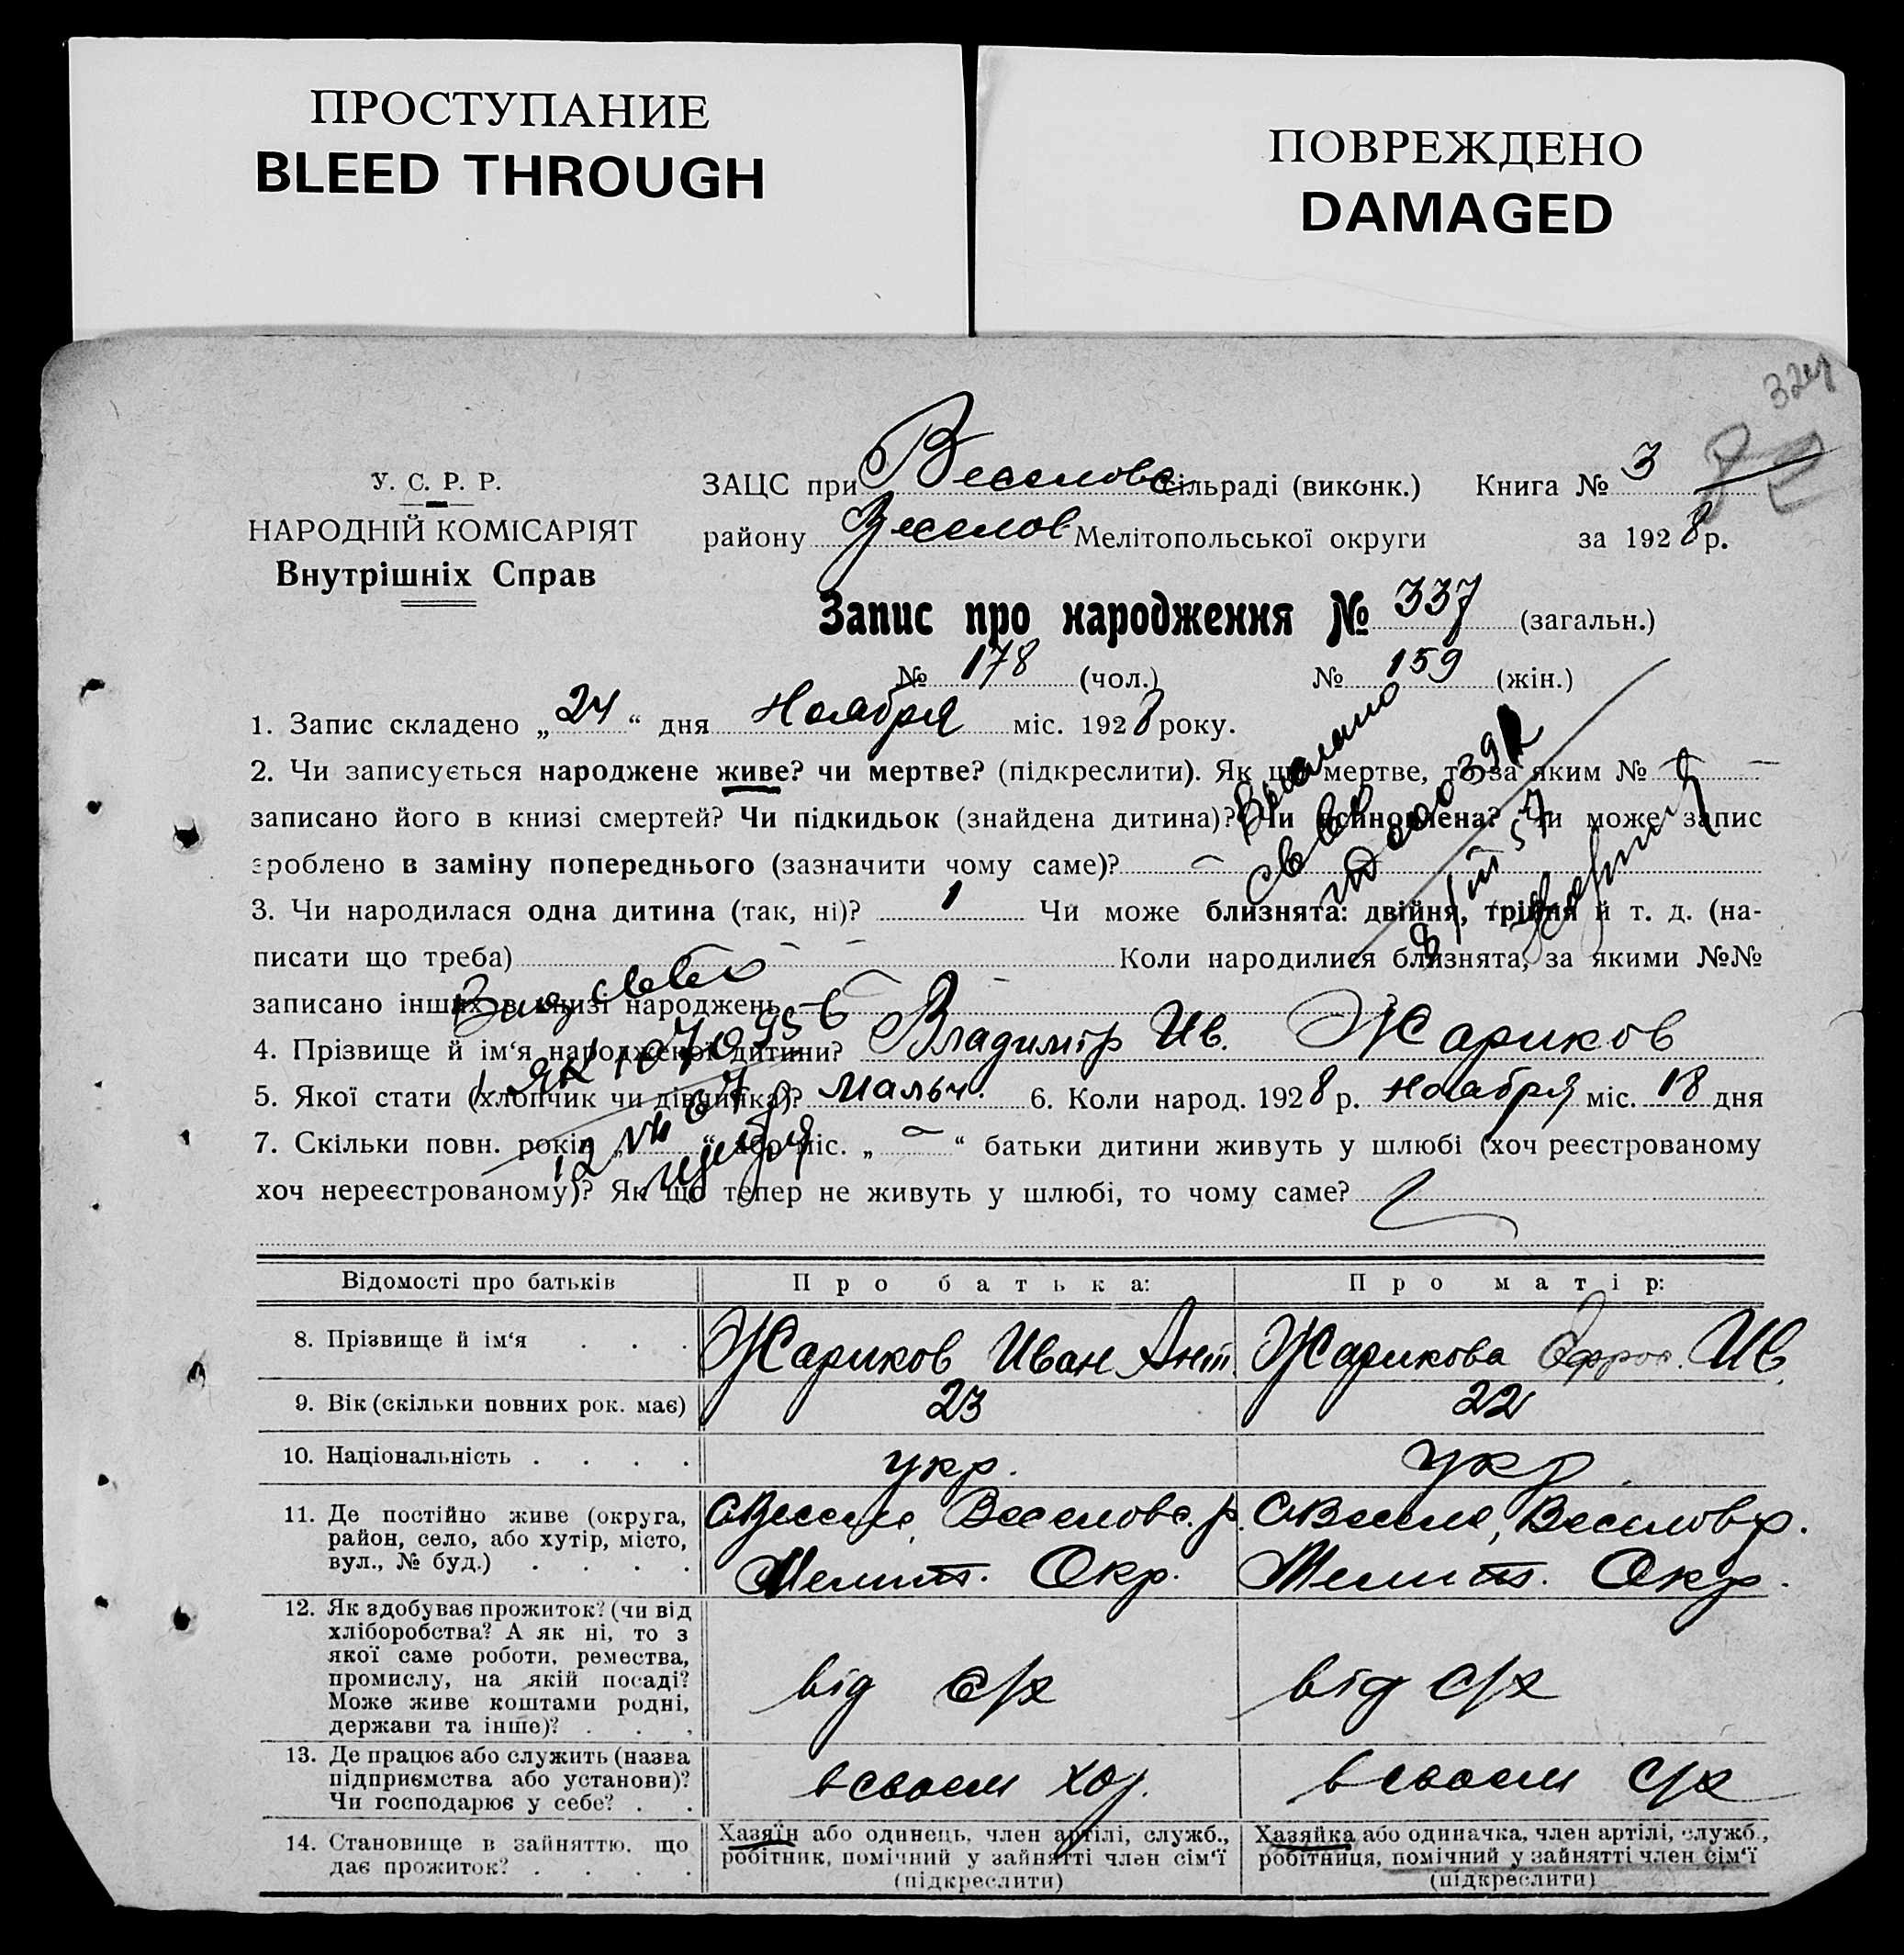 ПРОСТУПАНИЕ
BLEED THROUGH
ПОВРЕЖДЕНО
DAMAGED
У. С. Р. Р.
НАРОДНІЙ КОМІСАРІЯТ
Внутрішніх Справ
ЗАЦС при Веселовс сільраді (виконк.) Книга № 3
району Веселов Мелітопольської округи за 1928 р.
Запис про народження № 337 (загальн.)
№ 178 (чол.) № 159 (жін.)
1. Запис складено „24“ дня Ноября міс. 1928 року.
2. Чи записується народжене живе? чи мертве? (підкреслити). Як що мертве, то за яким №
записано його в книзі смертей? Чи підкидьок (знайдена дитина)? Чи всиновлена? Чи може запис
зроблено в заміну попереднього (зазначити чому саме)?
3. Чи народилася одна дитина (так, ні)? 1 Чи може близнята: двійня, трійня й т. д. (на-
писати що треба) Коли народилися близнята, за якими №№
записано інших в книзі народжень
4. Прізвище й ім‘я народженої дитини? Владимір Ив. Жариков
5. Якої стати (хлопчик чи дівчинка)? мальч. 6. Коли народ. 1928 р. Ноября міс. 18 дня
7. Скільки повн. років „ “ або міс. „ “ батьки дитини живуть у шлюбі (хоч реєстрованому
хоч нереєстрованому)? Як що тепер не живуть у шлюбі, то чому саме?
Відомості про батьків Про батька: Про матір:
8. Прізвище й ім‘я Жариков Иван Ант. Жарикова Ефрос. Ив.
9. Вік (скільки повних рок. має) 23 22
10. Національність укр. укр
11. Де постійно живе (округа, район, село, або хутір, місто, вул., № буд.)
с Веселе, Веселовс. р. Мелит. Окр.
с Веселе, Веселов р. Мелит. Окр.
12. Як здобуває прожиток? (чи від хліборобства? А як ні, то з якої саме роботи, ремества, промислу, на якій посаді? Може живе коштами родні, держави та інше)?
від с/х від с/х
13. Де працює або служить (назва підприємства або установи)? Чи господарює у себе?
в своем хоз. в своем с/х
14. Становище в зайняттю, що дає прожиток?
Хазяїн або одинець, член артілі, служб., робітник, помічний у зайнятті член сім‘ї (підкреслити)
Хазяйка або одиначка, член артілі, служб., робітниця, помічний у зайнятті член сім‘ї (підкреслити)